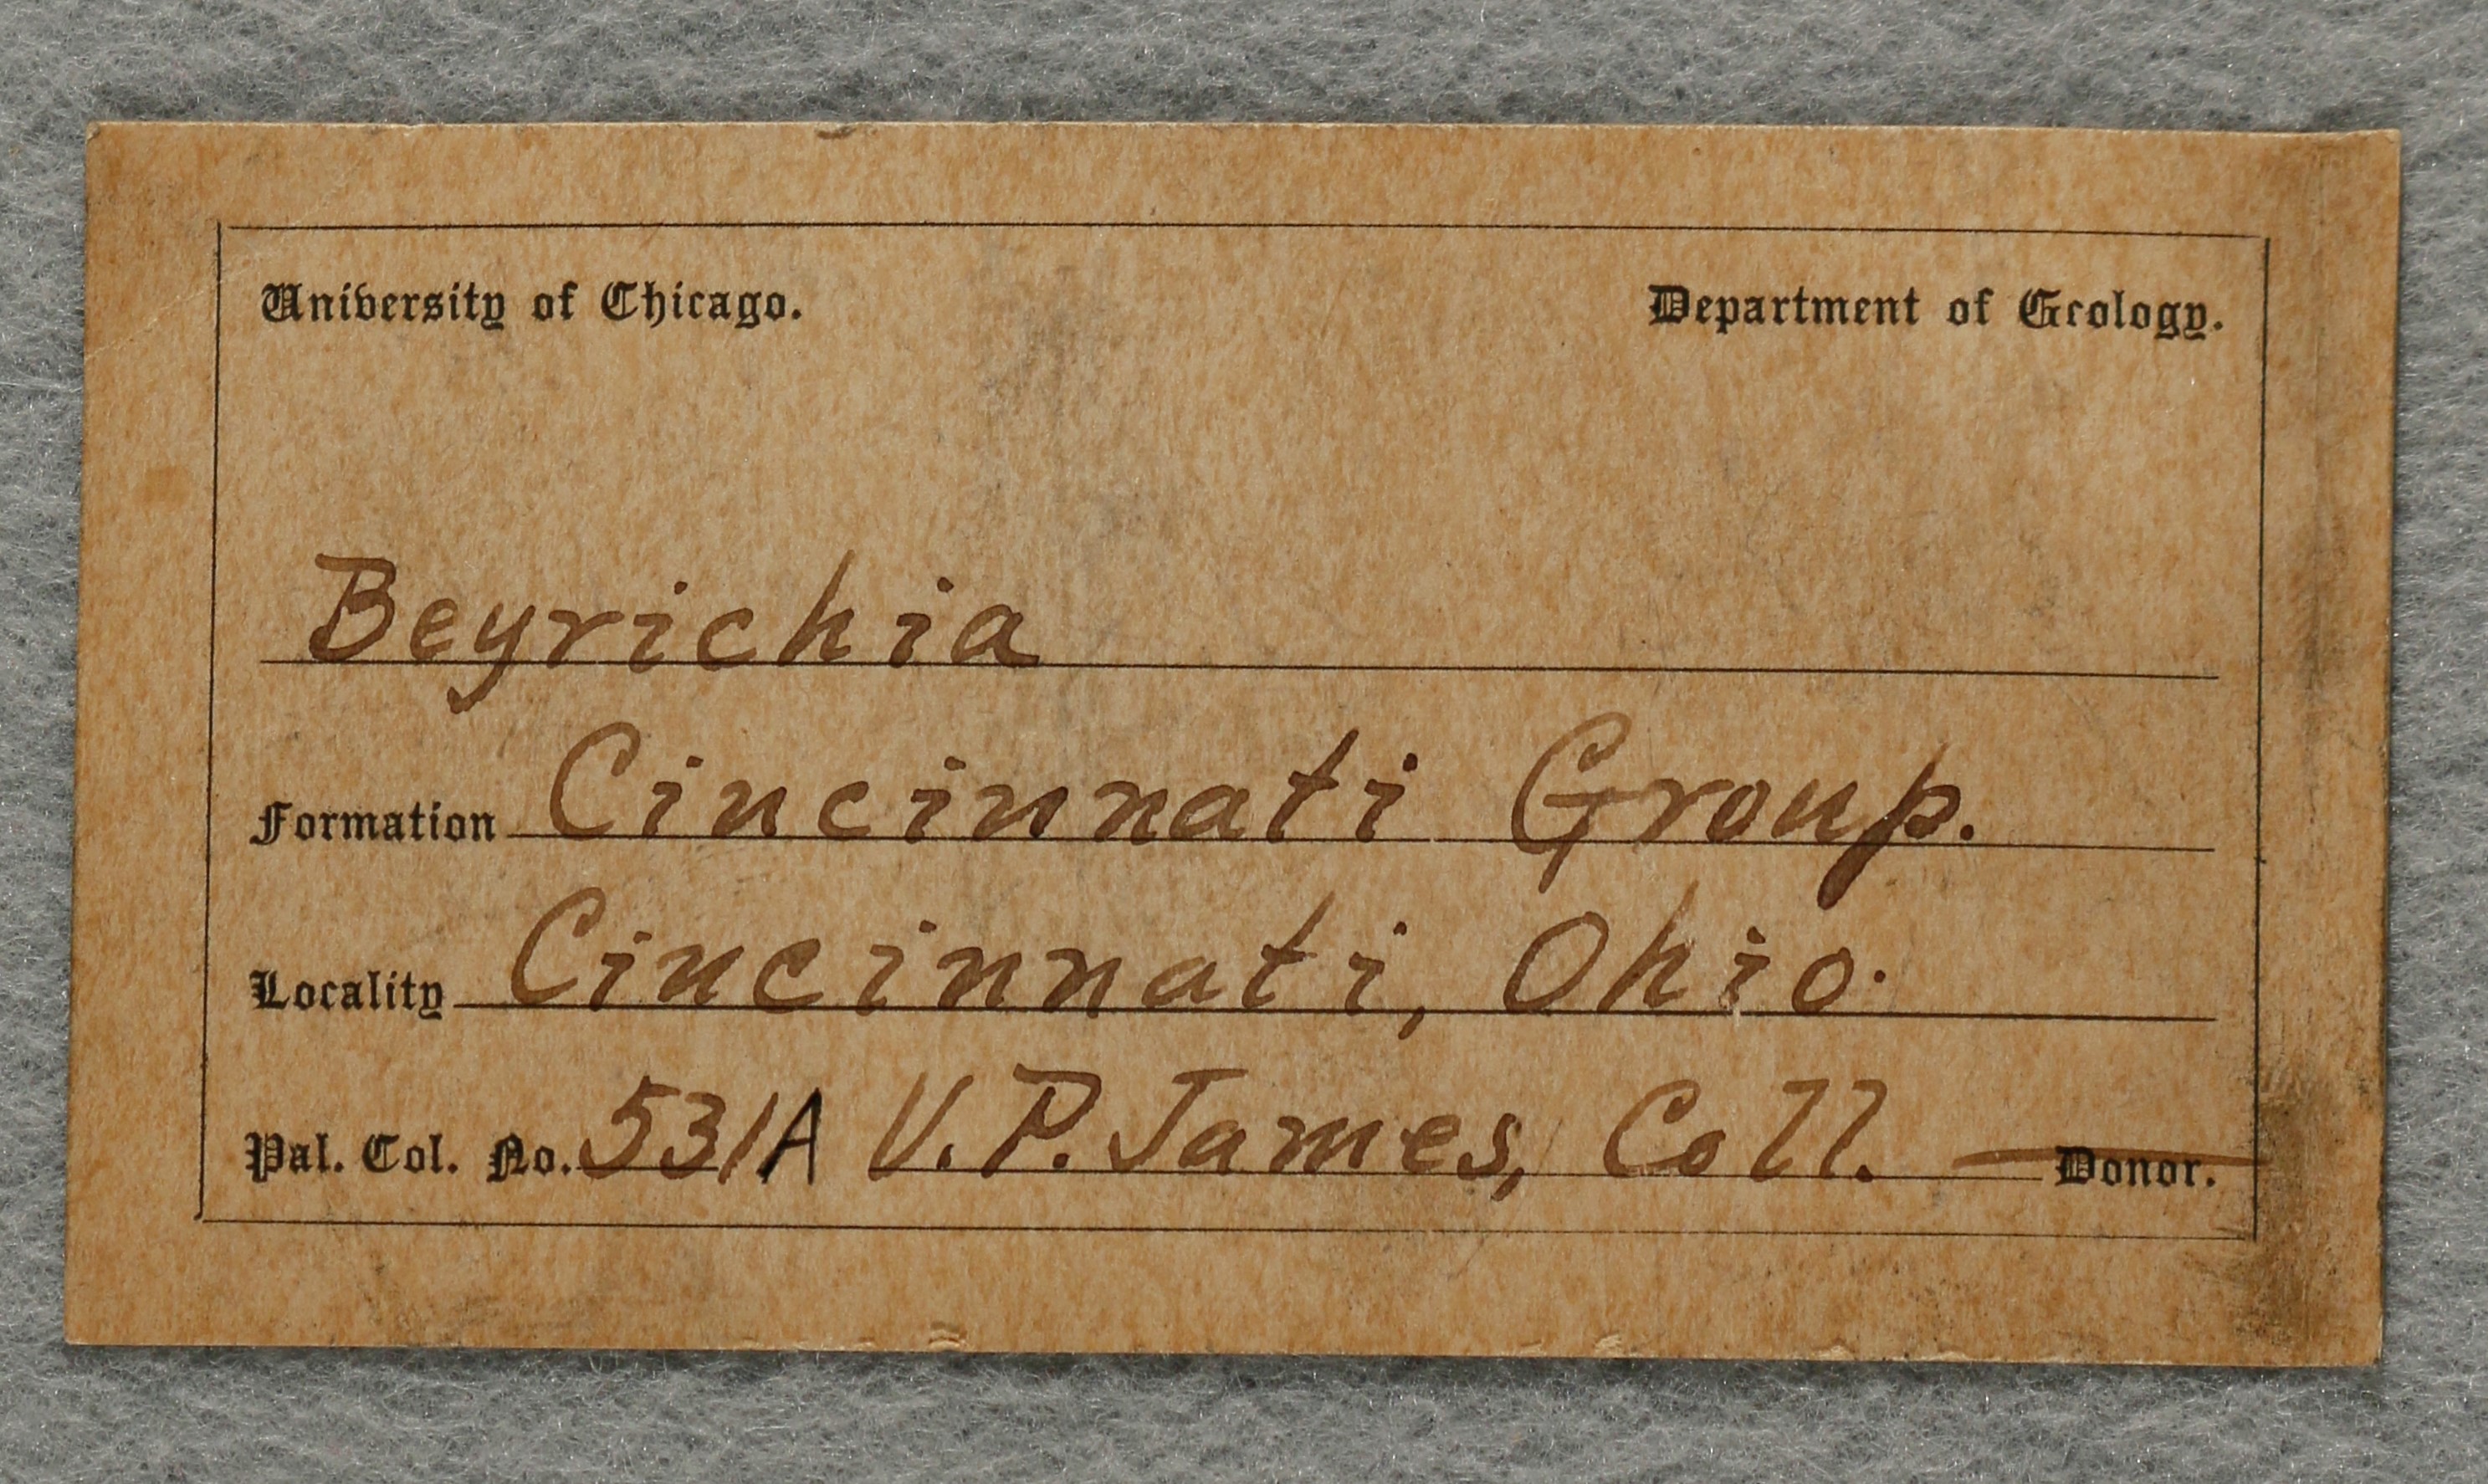 University of Chicago. Department of Geology.
Beyrichia
Formation Cincinnati Group.
Locality Cincinnati, Ohio.
Pal. Col. No. 531A V.P. James, Coll. Donor.